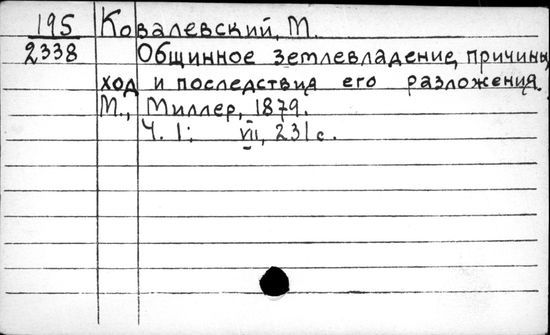 195 Ковалевский, М.
2338 Общинное землевладение, причины,
ход и последствия его разложения.
М., Миллер, 1879.
Ч. 1: VII, 231 с.